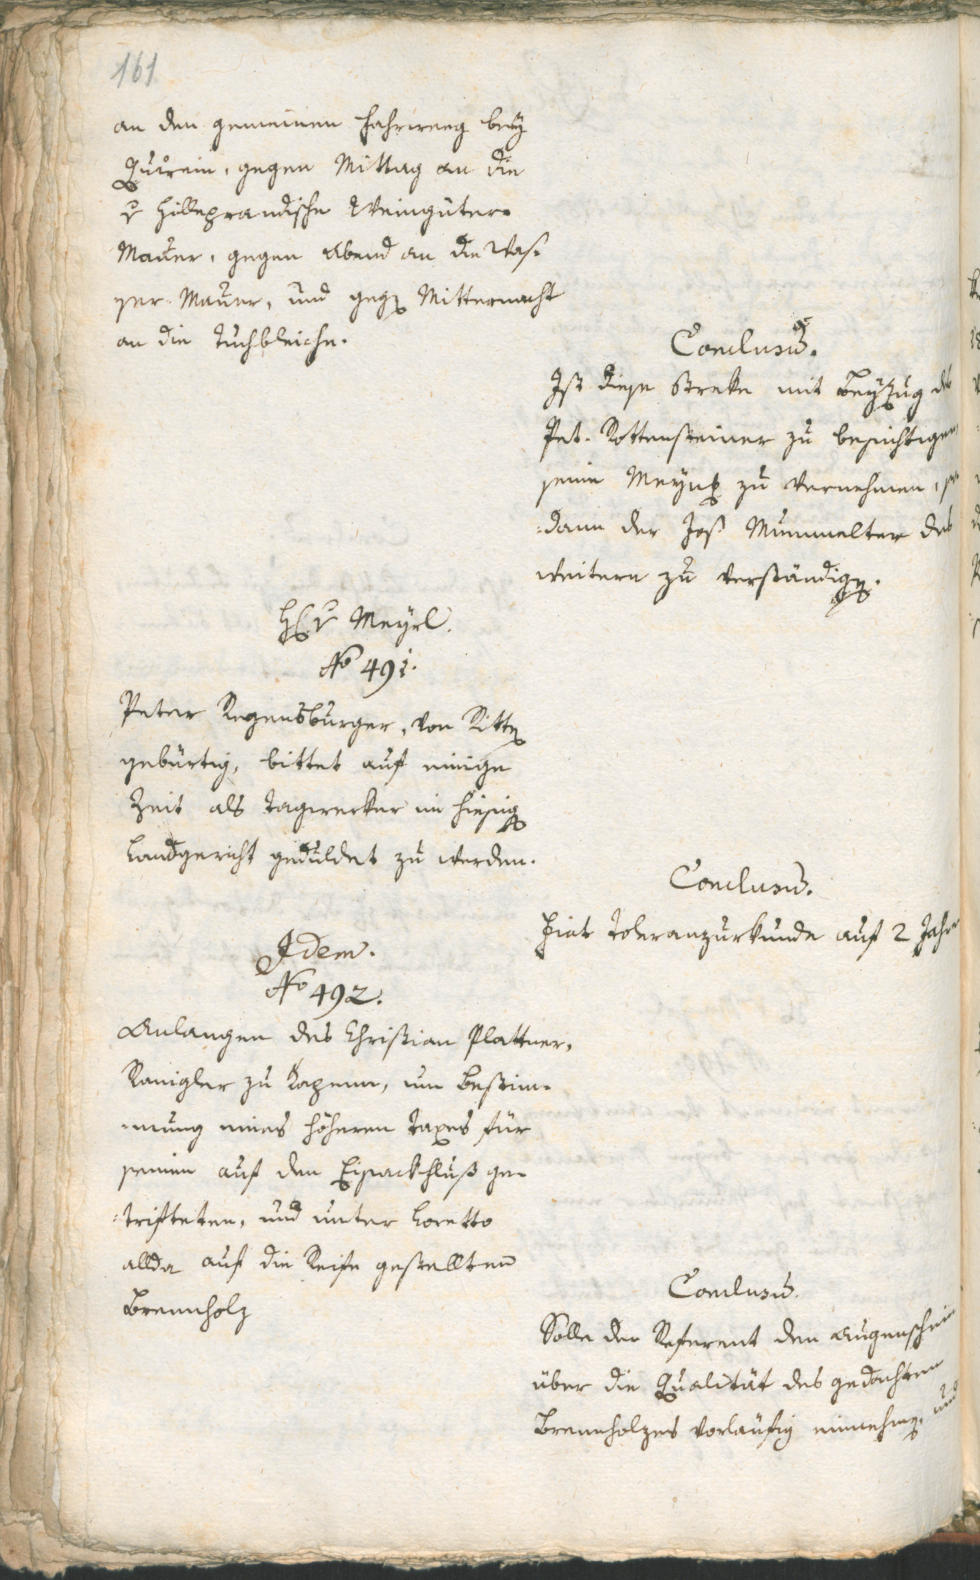 161
an den gemeinen Fahrweeg bey
Quirein, gegen Mittag an die
v Hilleprandische Weingüter-
Mauer, gegen Abend an die Was-
ser Mauer, und geg Mitternacht
an die Tuchbleiche.
Conclusũ.
Ist diese Streke mit Beyzug des
Pet. Kottensteiner zu besichtigen
seine Meyng zu vernehmen, so-
dann der Jos Mummelter des
weitern zu verständig.
H v Meyrl.
No 491.
Peter Regensburger, von Ritten
gebürtig, bittet auf einige
Zeit als Tagwerker im hiesig
Landgericht geduldet zu werden.
Conclusũ.
Fiat Toleranzurkunde auf 2 Jahre
Idem.
No 492.
Anlangen des Christian Plattner,
Ranigler zu Bozen, um Bestim-
mung eines höheren Taxes für
seinen auf den Eisackfluß ge-
trifteten, und unter Loretto
allda auf die Reife gestellten
Brennholz
Conclusũ.
Solle der Referent den Augenschein
über die Qualität des gedachten
Brennholzes vorläufig einnehmen, und